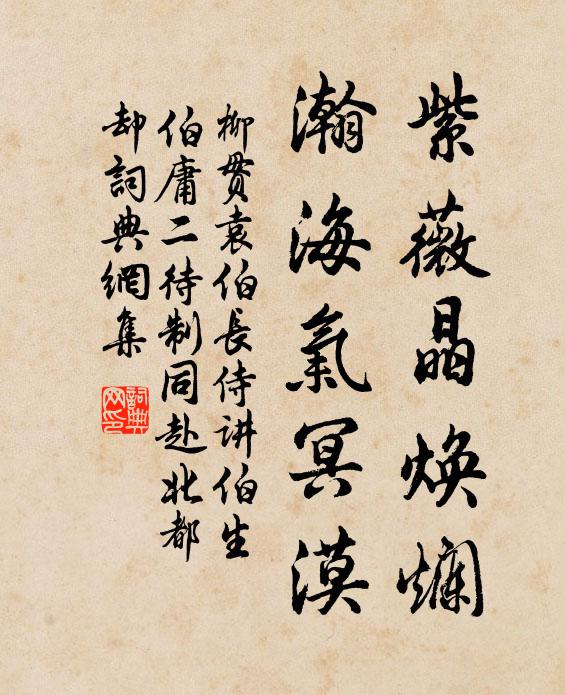 紫薇晶焕爛
瀚海氣冥漠
柳贯袁伯長侍讲伯生
伯庸二待制同赴北都
却詞典網集
詞典网印